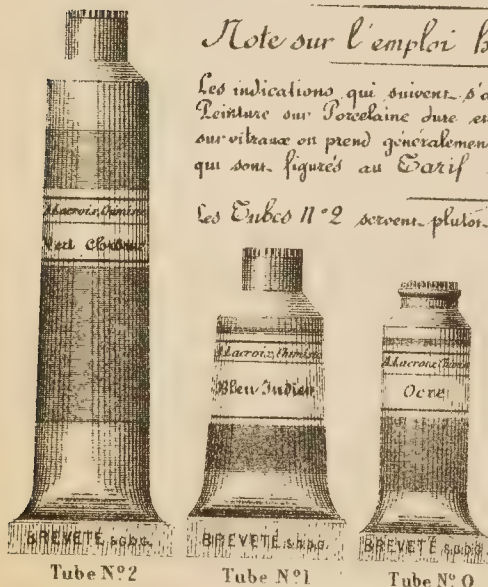 Note sur l'emploi
Les indications qui suivent s'a
Peinture sur Porcelaine dure et
sur vitraux on prend généralement
qui sont figurés au Tarif
Les Tubes N°2 servent plutôt
A Lacroix, Chimiste
Vert Chrome
A Lacroix, Chimiste
Bleu Indien
A Lacroix, Chimiste
Ocre
BREVETÉ s.g.d.g.
BREVETÉ s.g.d.g.
BREVETÉ s.g.d.g.
Tube N°2
Tube N°1
Tube N°0